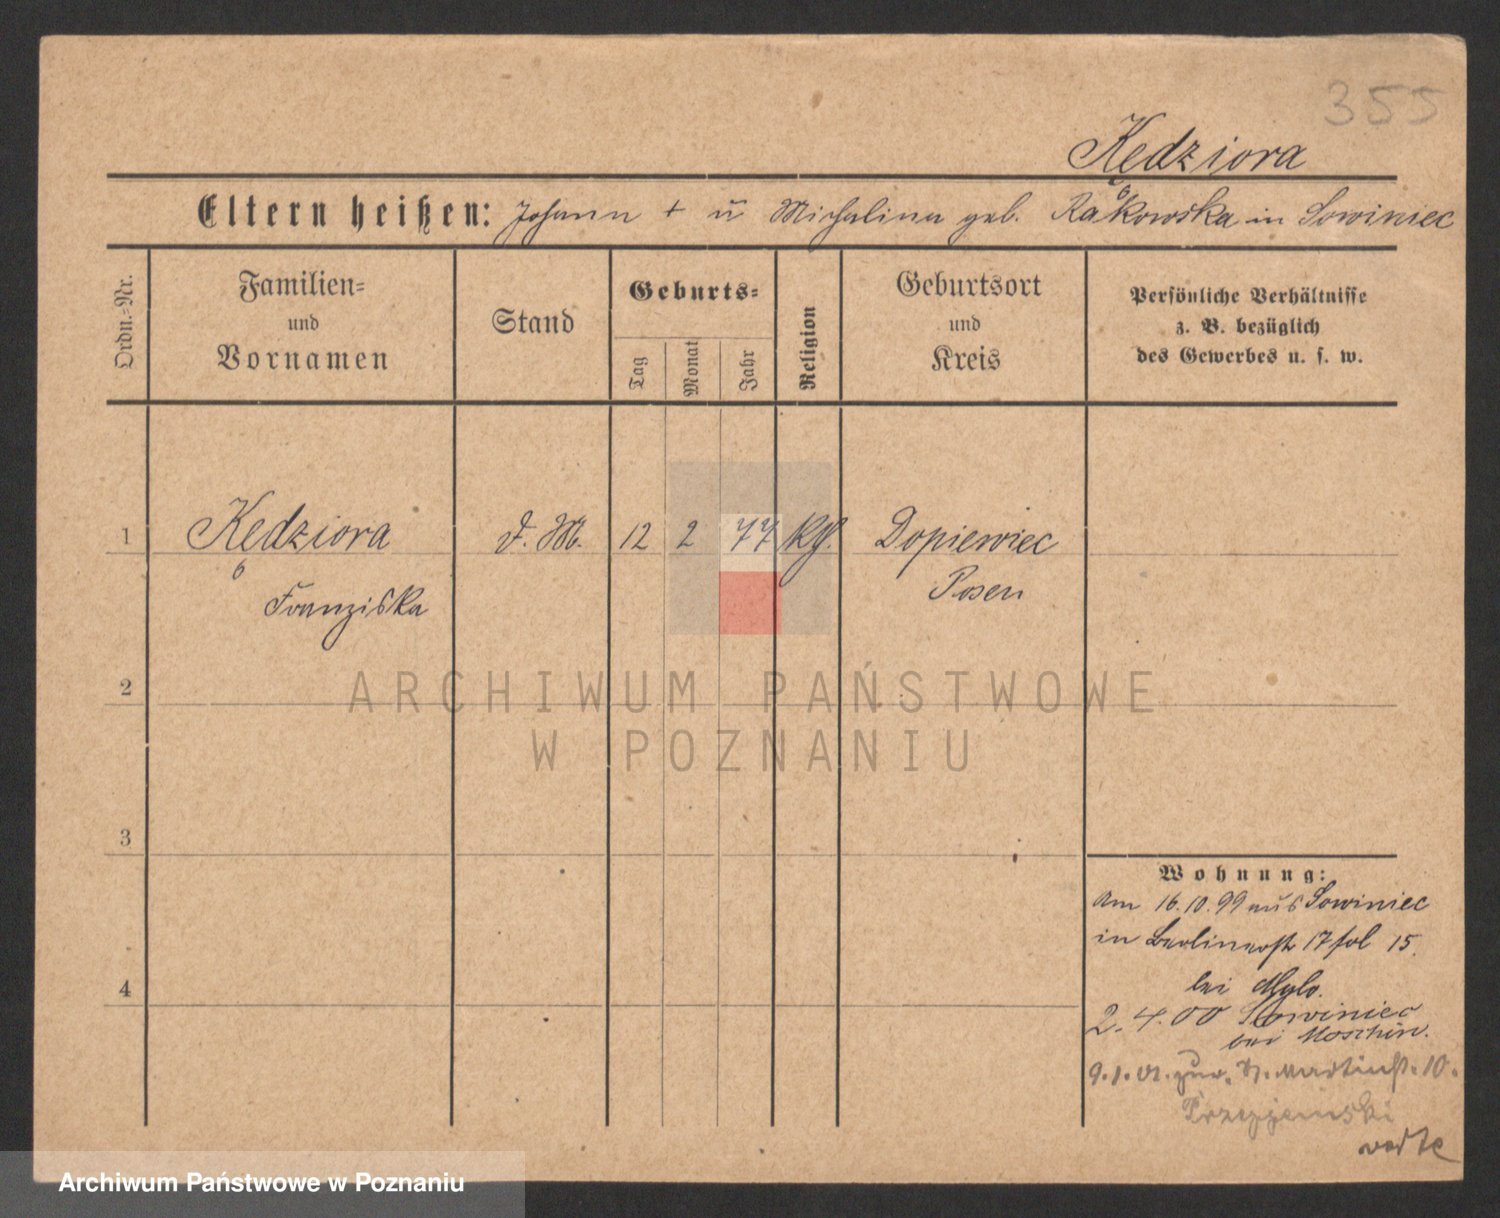 355
Kędziora
Eltern heißen: Johann + ŭ Michalina geb. Rąkowska in Sowiniec
Ordn.-Nr.
Familien-
und
Vornamen
Stand
Geburts-
Tag
Monat
Jahr
Religion
Geburtsort
und
Kreis
Persönliche Verhältnisse
z. B. bezüglich
des Gewerbes u. s. w.
1 Kędziora d. M. 12 2 77 kth. Dopiewiec
Franziska Posen
2
ARCHIWUM PAŃSTWOWE
W POZNANIU
3
4
Wohnung:
Am 16.10.99 aus Sowiniec
in Berlinerstr 17 15.
bei Mylo.
2.4.00 Sowiniec
bei Moschin.
9.1.01. zur. St. Martinstr. 10.
Archiwum Państwowe w Poznaniu